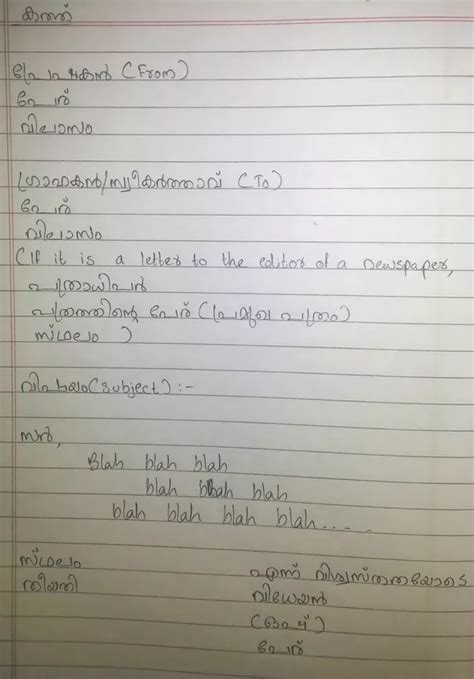 കത്ത്
പ്രേഷകൻ (From)
പേര്
വിലാസം
ഗ്രാഹകൻ/സ്വീകർത്താവ് (To)
പേര്
വിലാസം
(If it is a letter to the editor of a newspaper,
പത്രാധിപൻ
പത്രത്തിന്റെ പേര് (പ്രമുഖ പത്രം)
സ്ഥലം )
വിഷയം (Subject) :-
സർ,
Blah blah blah
blah blah blah
blah blah blah blah....
സ്ഥലം
തീയതി
എന്ന് വിശ്വസ്തതയോടെ
വിധേയൻ
(ഒപ്പ്)
പേര്